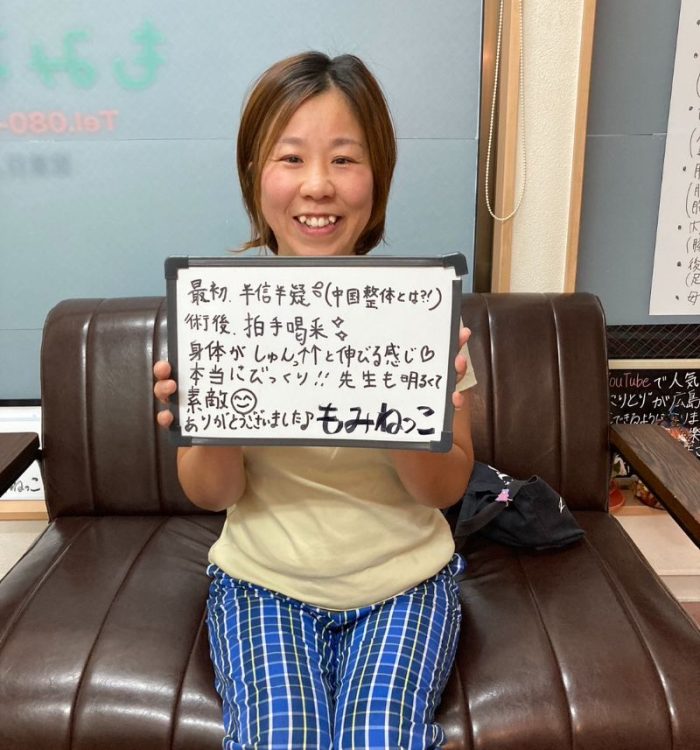 もみ
Tel.080-
最初、半信半疑(中国整体とは?!)
術後、拍手喝采
身体がしゅんっ↑↑と伸びる感じ♡
本当にびっくり!! 先生も明るくて
素敵😊
ありがとうございました♪ もみねっこ
YouTubeで人気
こりとり"が広島
できるように
ねっこ